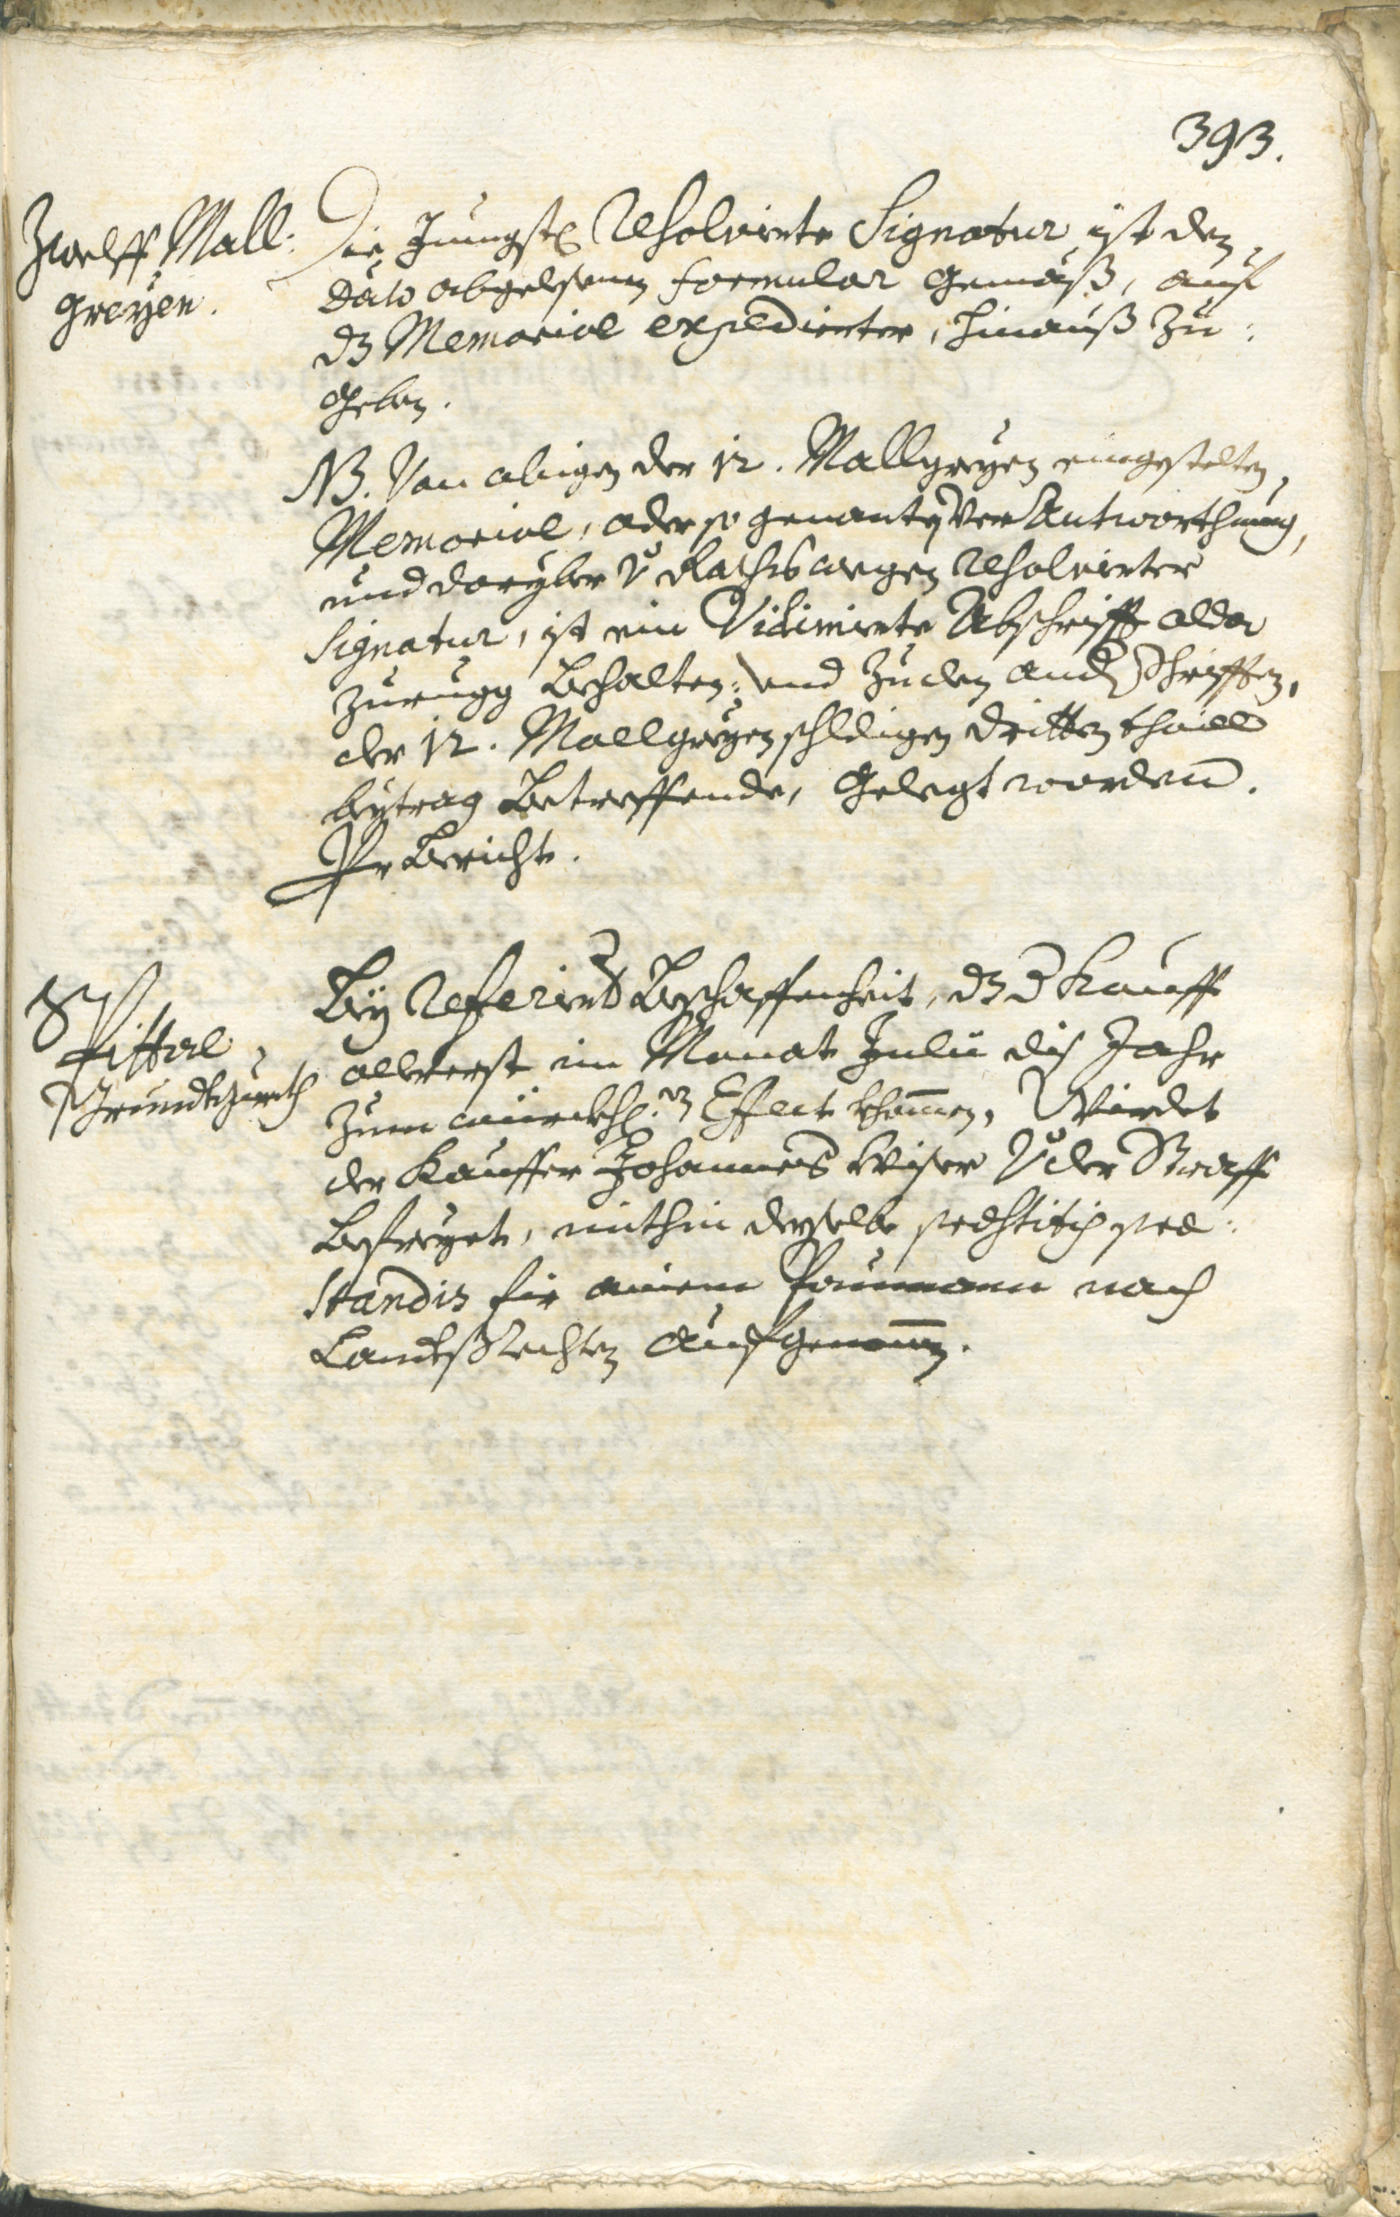 393.
Zwelff Mall:
greyen.
Die Jungst Resolvierte Signatur ist den
Dato abgelesnen formular gemäß, auf
dz Memorial expedierter, hinauß zu:
geben.
NB. Von obigen der 12. Mallgreyen eingestelten
Memorial, oder so genanten Verantworthung,
und daryber v. Raths wegen Resolvierter
Signatur, ist ein Vidimierte Abschrifft alda
zurugg behalten: und zu den andern Schrifften,
der 12. Mallgreyen schuldigen dritten thaill
beytrag betreffende, gelegt worden.
Pr Bericht.
Spittal
Grundtzünß
Bey Referierter Beschaffenheit, dz d Kauff
allererst im Monat Juli diß Jahr
zum würckhl. Effect khommen, Würdet
der Kauffer Johannes Wiser v der Straff
befreyet, mithin derselbe
standis für ainen Paumann nach
Landtßrechten aufgenommen.